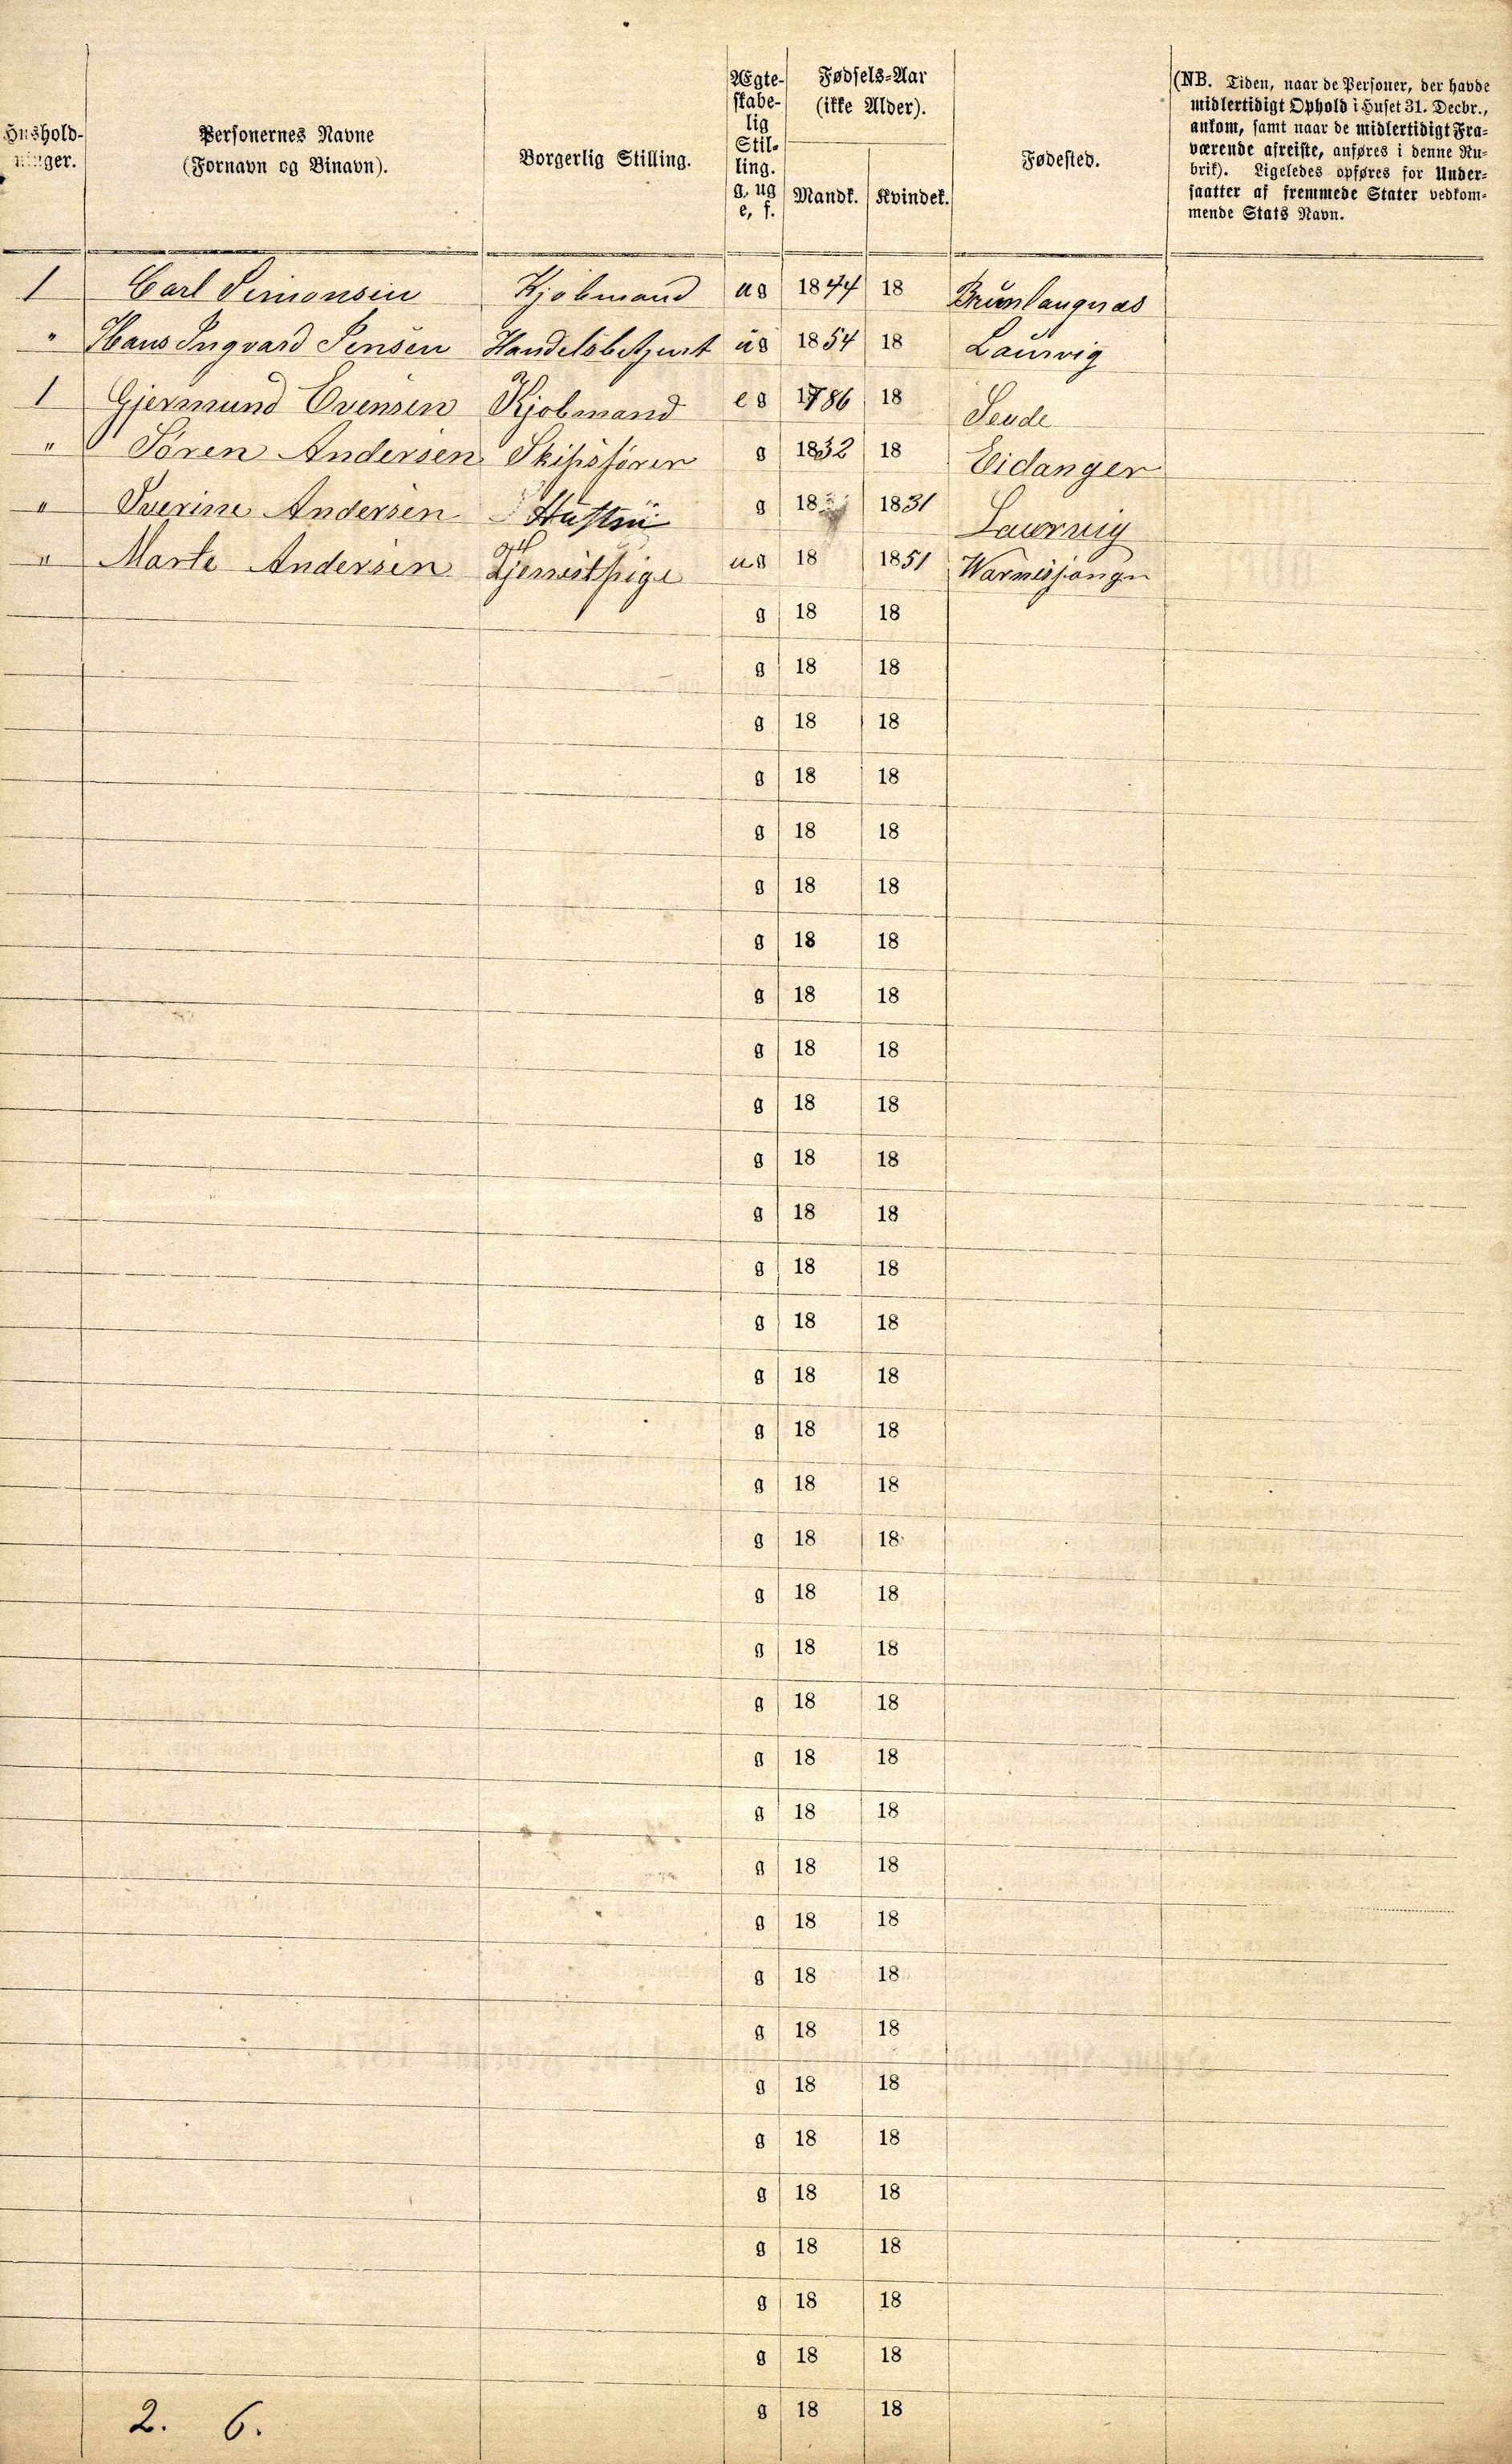 Hushold-
ninger.
Personernes Navne
(Fornavn og Binavn).
Borgerlig Stilling.
Ægte-
skabe-
lig
Stil-
ling.
g, ug
e, f.
Fødsels-Aar
(ikke Alder).
Mandk. Kvindek.
Fødested.
(NB. Tiden, naar de Personer, der havde
midlertidigt Ophold i Huset 31. Decbr.,
ankom, samt naar de midlertidigt Fra-
værende afreiste, anføres i denne Ru-
brik). Ligeledes opføres for Under-
saatter af fremmede Stater vedkom-
mende Stats Navn.
1 Carl Simonsen Kjøbmand ug 1844 18 Brunlaugnæs
" Hans Ingvard Jensen Handelsbetjent ug 1854 18 Laurvig
1 Gjermund Evensen Kjøbmand eg 1786 18
" Sören Andersen Skibsfører g 1832 18 Eidanger
" Severine Andersen Hustru g 18 1831 Laurvig
" Marte Andersen Tjenestpige ug 18 1851
g 18 18
g 18 18
g 18 18
g 18 18
g 18 18
g 18 18
g 18 18
g 18 18
g 18 18
g 18 18
g 18 18
g 18 18
g 18 18
g 18 18
g 18 18
g 18 18
g 18 18
g 18 18
g 18 18
g 18 18
g 18 18
g 18 18
g 18 18
g 18 18
g 18 18
g 18 18
g 18 18
g 18 18
g 18 18
g 18 18
g 18 18
g 18 18
g 18 18
g 18 18
2. 6.